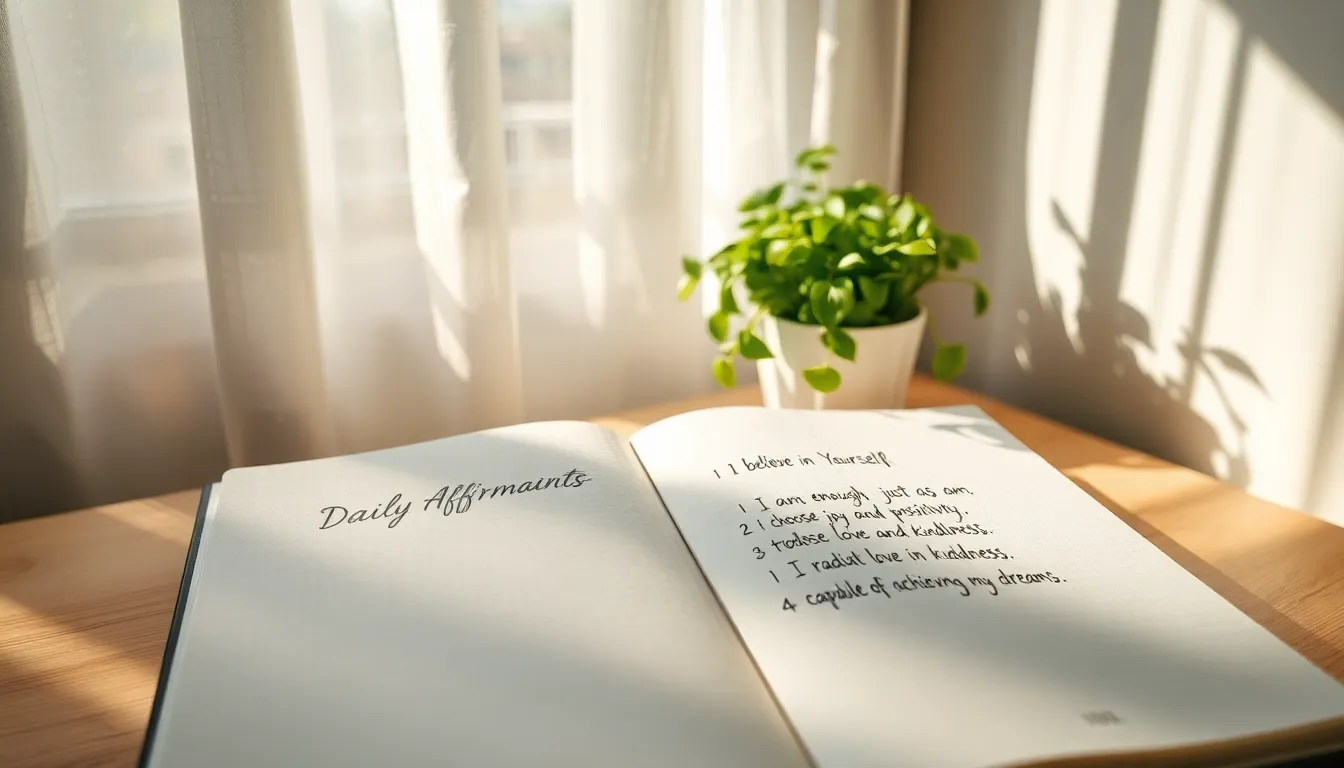 Daily Affirmaunts
1 1 belese in Yourself
1 I am enough just as am.
2 I choose joy and prsitivty.
3 trodsse love and kindlness.
1 I radial love in kuddness.
4 capable of achieving my dreams.